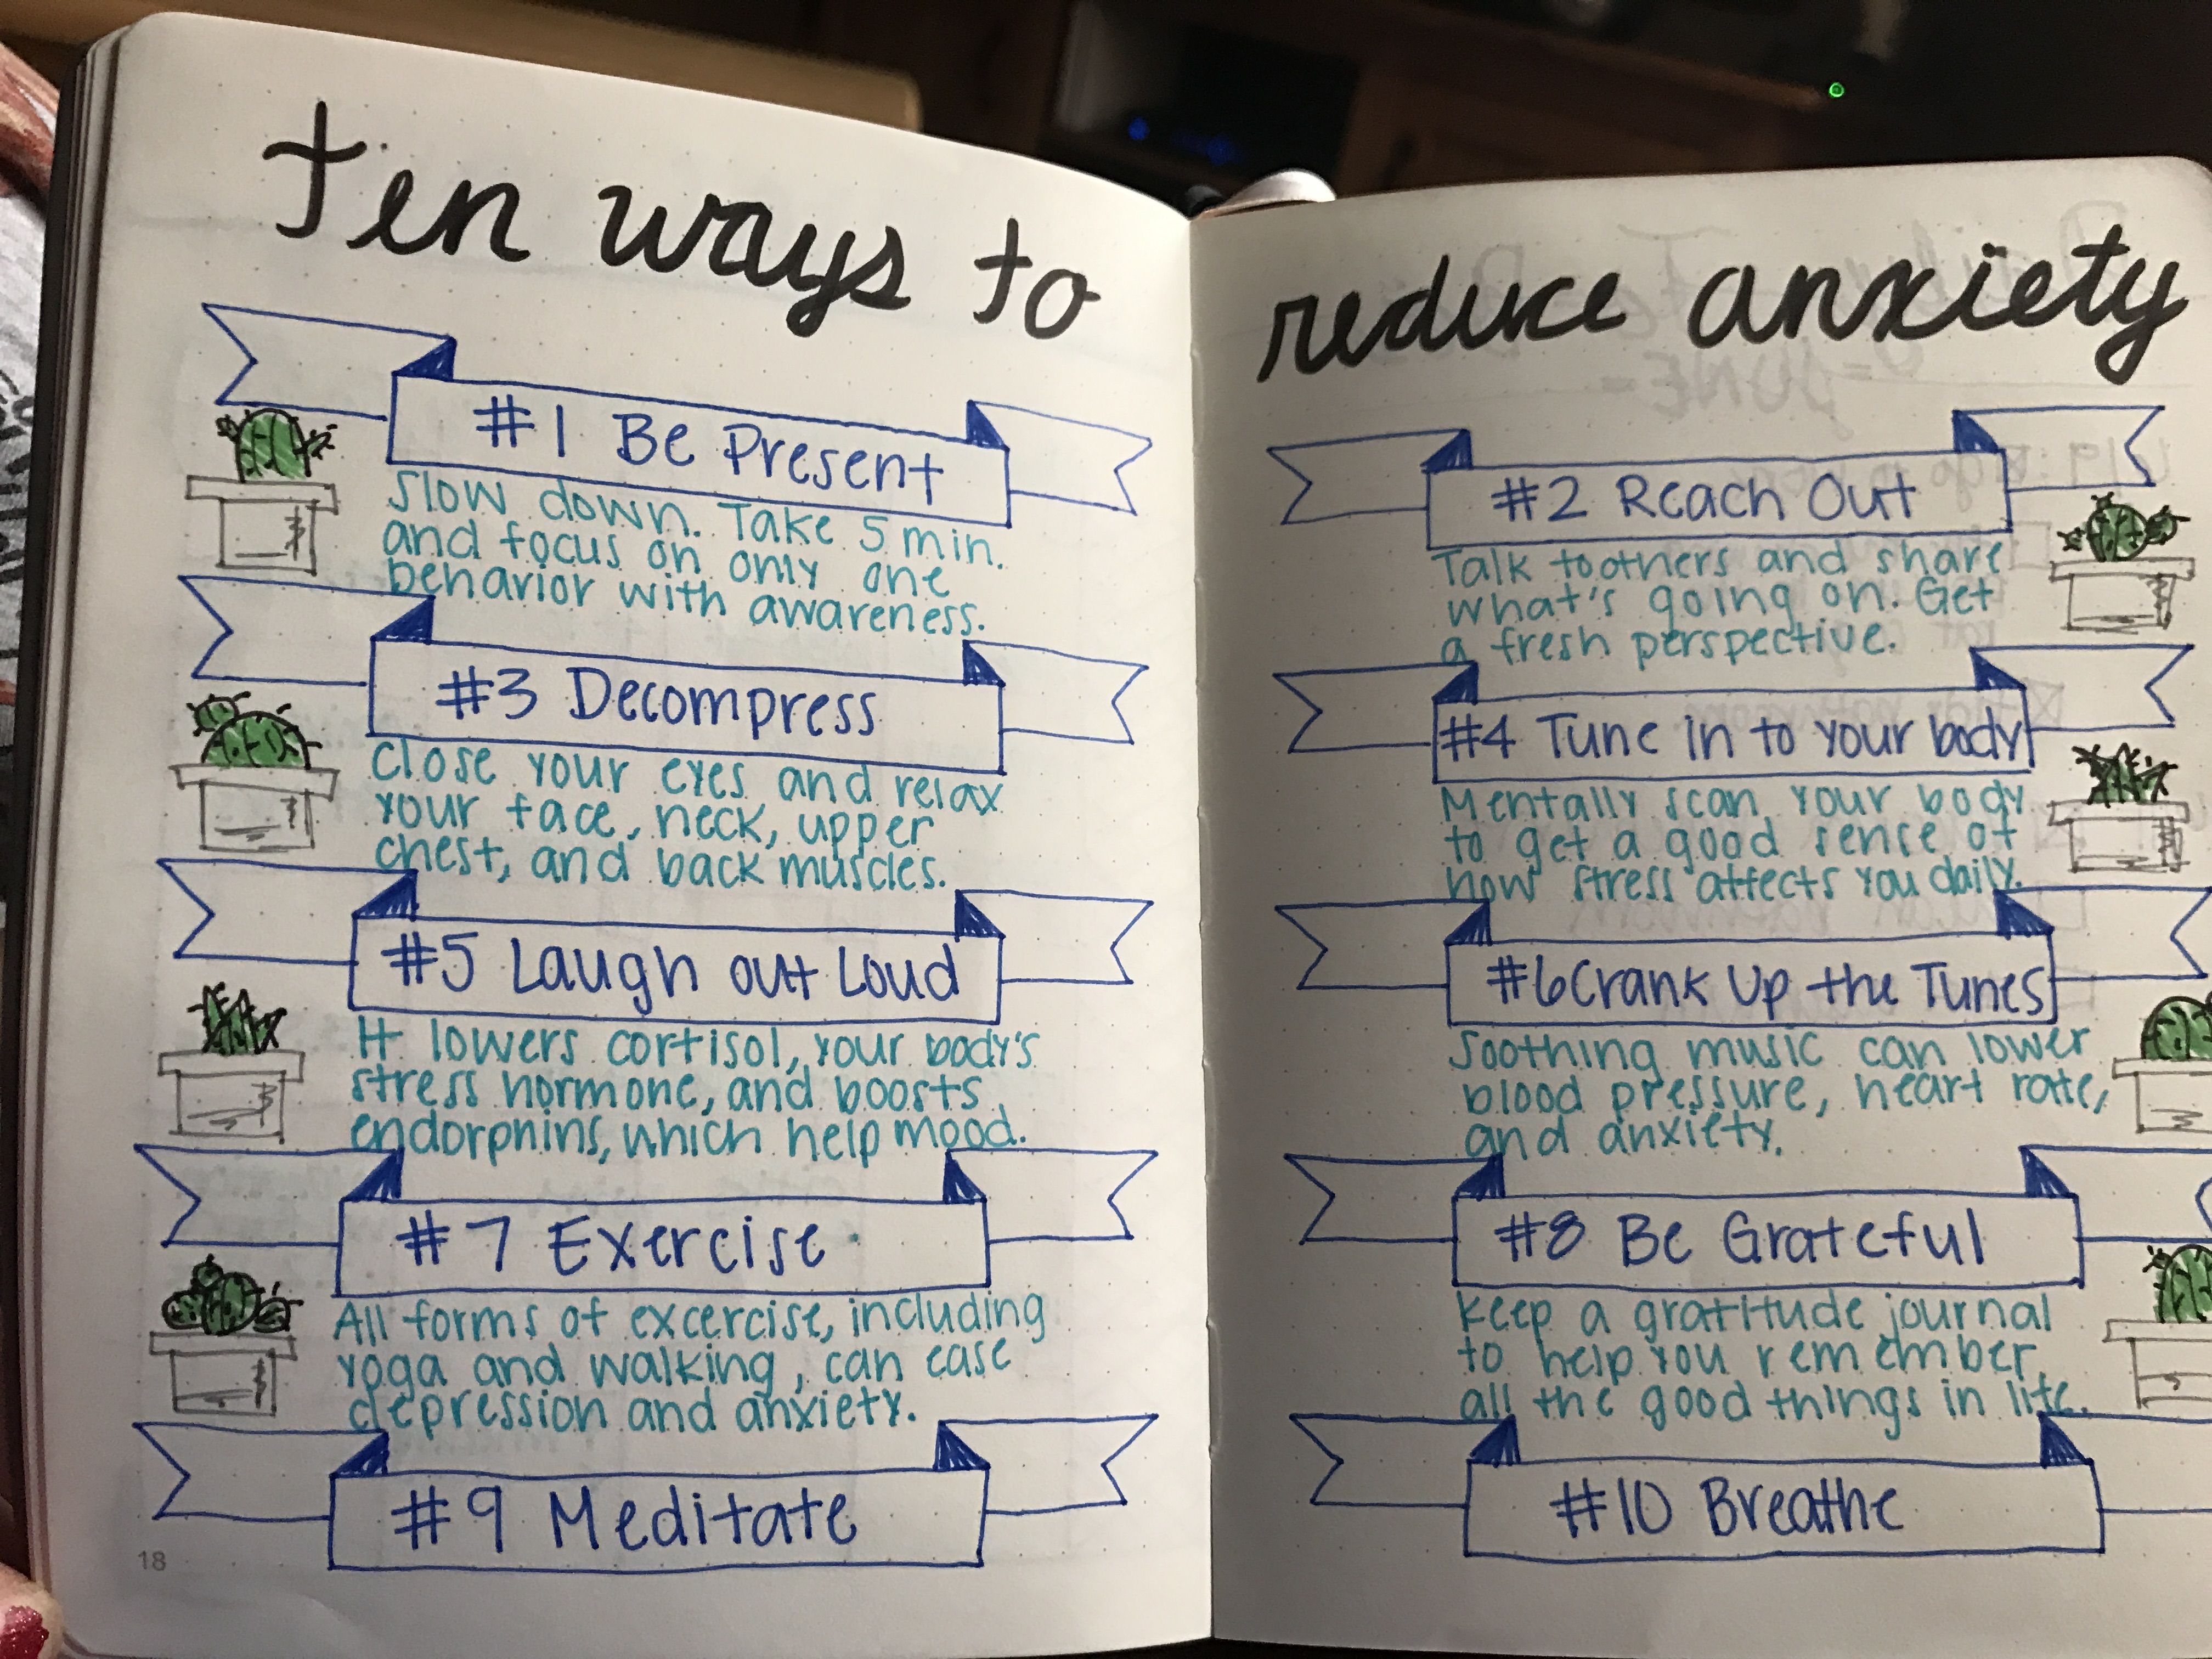 Ten ways to
#1 Be Present
Slow down. Take 5 min.
and focus on only one
behavior with awareness.
#3 Decompress
Close your eyes and relax
your face, neck, upper
chest, and back muscles.
#5 Laugh out Loud
It lowers cortisol, your body's
stress hormone, and boosts
endorphins, which help mood.
#7 Exercise
All forms of excercise, including
yoga and walking, can ease
depression and anxiety.
#9 Meditate
18
reduce anxiety
#2 Reach Out
Talk to others and share
what's going on. Get
a fresh perspective.
#4 Tune in to your body
Mentally scan your body
to get a good sense of
how stress affects you daily.
#6 Crank Up the Tunes
Soothing music can lower
blood pressure, heart rate,
and anxiety.
#8 Be Grateful
Keep a gratitude journal
to help you remember
all the good things in life.
#10 Breathe